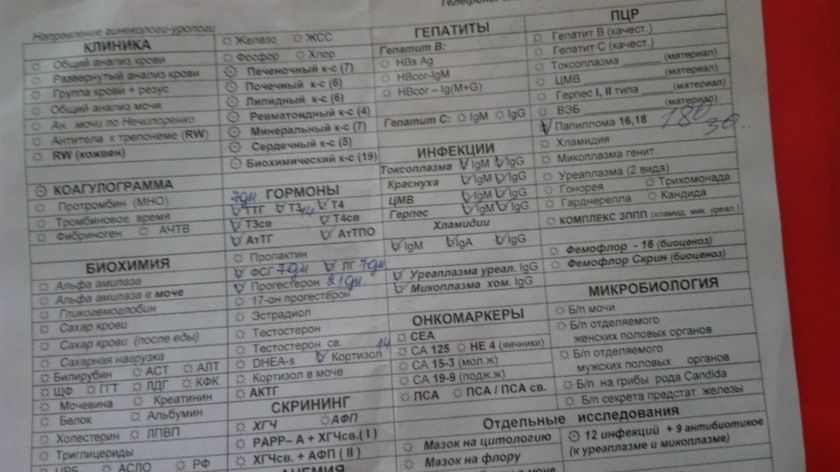 Направление гинекологи-урологи
КЛИНИКА
Общий анализ крови
Развернутый анализ крови
Группа крови + резус
Общий анализ мочи
Ан. мочи по Нечипоренко
Антитела к трепонеме (RW)
RW (кожвен)
КОАГУЛОГРАММА
Протромбин (МНО)
Тромбиновое время
Фибриноген АЧТВ
БИОХИМИЯ
Альфа амилаза
Альфа амилаза в моче
Гликогемоглобин
Сахар крови
Сахар крови (после еды)
Сахарная нагрузка
Билирубин АСТ АЛТ
ЩФ ГГТ ЛДГ КФК
Мочевина Креатинин
Белок Альбумин
Холестерин ЛПВП
Триглицериды
АСЛО РФ
Железо ЖСС
Фосфор Хлор
Печеночный к-с (7)
Почечный к-с (6)
Липидный к-с (6)
Ревматоидный к-с (4)
Минеральный к-с (7)
Сердечный к-с (5)
Биохимический к-с (19)
7дц. ГОРМОНЫ
ТТГ Т3 Т4
Т3св Т4св
АтТГ АтТПО
Пролактин
ФСГ 7дц ЛГ 7дц
Прогестерон 21дц
17-он прогестерон
Эстрадиол
Тестостерон
Тестостерон св.
DHEA-s Кортизол
Кортизол в моче
АКТГ
СКРИНИНГ
ХГЧ АФП
РАРР– А + ХГЧсв.( I )
ХГЧсв. + АФП ( II )
АНЕМИЯ
ГЕПАТИТЫ
Гепатит В:
HBs Ag
HBcor-IgM
HBcor – Ig(M+G)
Гепатит С: IgM IgG
ИНФЕКЦИИ
Токсоплазма IgM IgG
Краснуха IgM IgG
ЦМВ IgM IgG
Герпес IgM IgG
Хламидии
IgM IgA IgG
Уреаплазма уреал. IgG
Микоплазма хом. IgG
ОНКОМАРКЕРЫ
СЕА
СА 125 НЕ 4 (яичники)
СА 15-3 (мол.ж)
СА 19-9 (подж.ж)
ПСА ПСА / ПСА св.
Отдельные исследования
Мазок на цитологию
Мазок на флору
12 инфекций + 9 антибиотиков
(к уреаплазме и микоплазме)
ПЦР
Гепатит В (качест.)
Гепатит С (качест.)
Токсоплазма (материал)
ЦМВ (материал)
Герпес I, II типа (материал)
ВЭБ (материал)
Папиллома 16,18
180
30
Хламидия
Микоплазма генит
Уреаплазма (2 вида)
Гонорея Трихомонада
Гарднерелла Кандида
КОМПЛЕКС ЗППП (хламид. мик. уреал.)
Фемофлор - 16 (биоценоз)
Фемофлор Скрин (биоценоз)
МИКРОБИОЛОГИЯ
Б/п мочи
Б/п отделяемого
женских половых органов
Б/п отделяемого
мужских половых органов
Б/п на грибы рода Candida
Б/п секрета предстат. железы